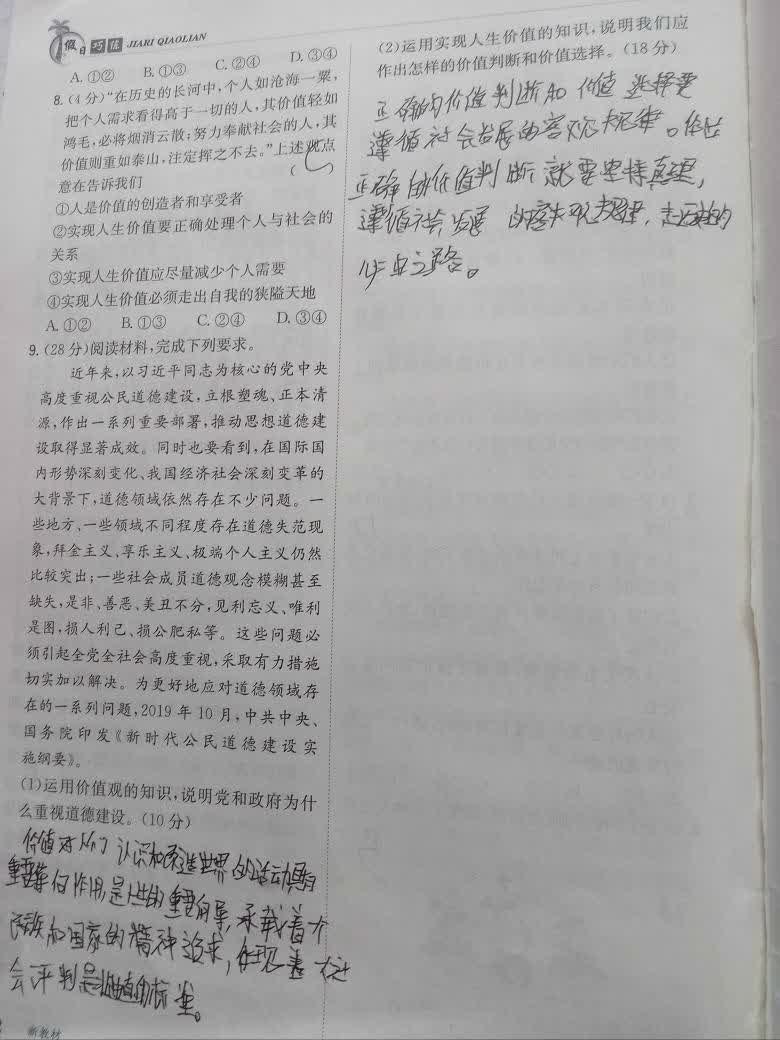 假日巧练 JIARI QIAOLIAN
A. ①② B. ①③ C. ②④ D. ③④
8. (4分)“在历史的长河中,个人如沧海一粟,
把个人需求看得高于一切的人,其价值轻如
鸿毛,必将烟消云散;努力奉献社会的人,其
价值则重如泰山,注定挥之不去。”上述观点
意在告诉我们 ( C )
①人是价值的创造者和享受者
②实现人生价值要正确处理个人与社会的
关系
③实现人生价值应尽量减少个人需要
④实现人生价值必须走出自我的狭隘天地
A. ①② B. ①③ C. ②④ D. ③④
9. (28分)阅读材料,完成下列要求。
近年来,以习近平同志为核心的党中央
高度重视公民道德建设,立根塑魂、正本清
源,作出一系列重要部署,推动思想道德建
设取得显著成效。同时也要看到,在国际国
内形势深刻变化、我国经济社会深刻变革的
大背景下,道德领域依然存在不少问题。一
些地方、一些领域不同程度存在道德失范现
象,拜金主义、享乐主义、极端个人主义仍然
比较突出;一些社会成员道德观念模糊甚至
缺失,是非、善恶、美丑不分,见利忘义、唯利
是图,损人利己、损公肥私等。这些问题必
须引起全党全社会高度重视,采取有力措施
切实加以解决。为更好地应对道德领域存
在的一系列问题,2019年10月,中共中央、
国务院印发《新时代公民道德建设实
施纲要》。
(1)运用价值观的知识,说明党和政府为什
么重视道德建设。(10分)
价值对人们认识和改造世界的活动具有
重要导向作用,是人生的重要向导,承载着个
民族和国家的精神追求,体现着个社
会评判是非曲直的标准。
新教材
(2)运用实现人生价值的知识,说明我们应
作出怎样的价值判断和价值选择。(18分)
正确的价值判断和价值选择要
遵循社会发展的客观规律。作出
正确的价值判断就要坚持真理,
遵循社会发展的客观规律,走
之路。